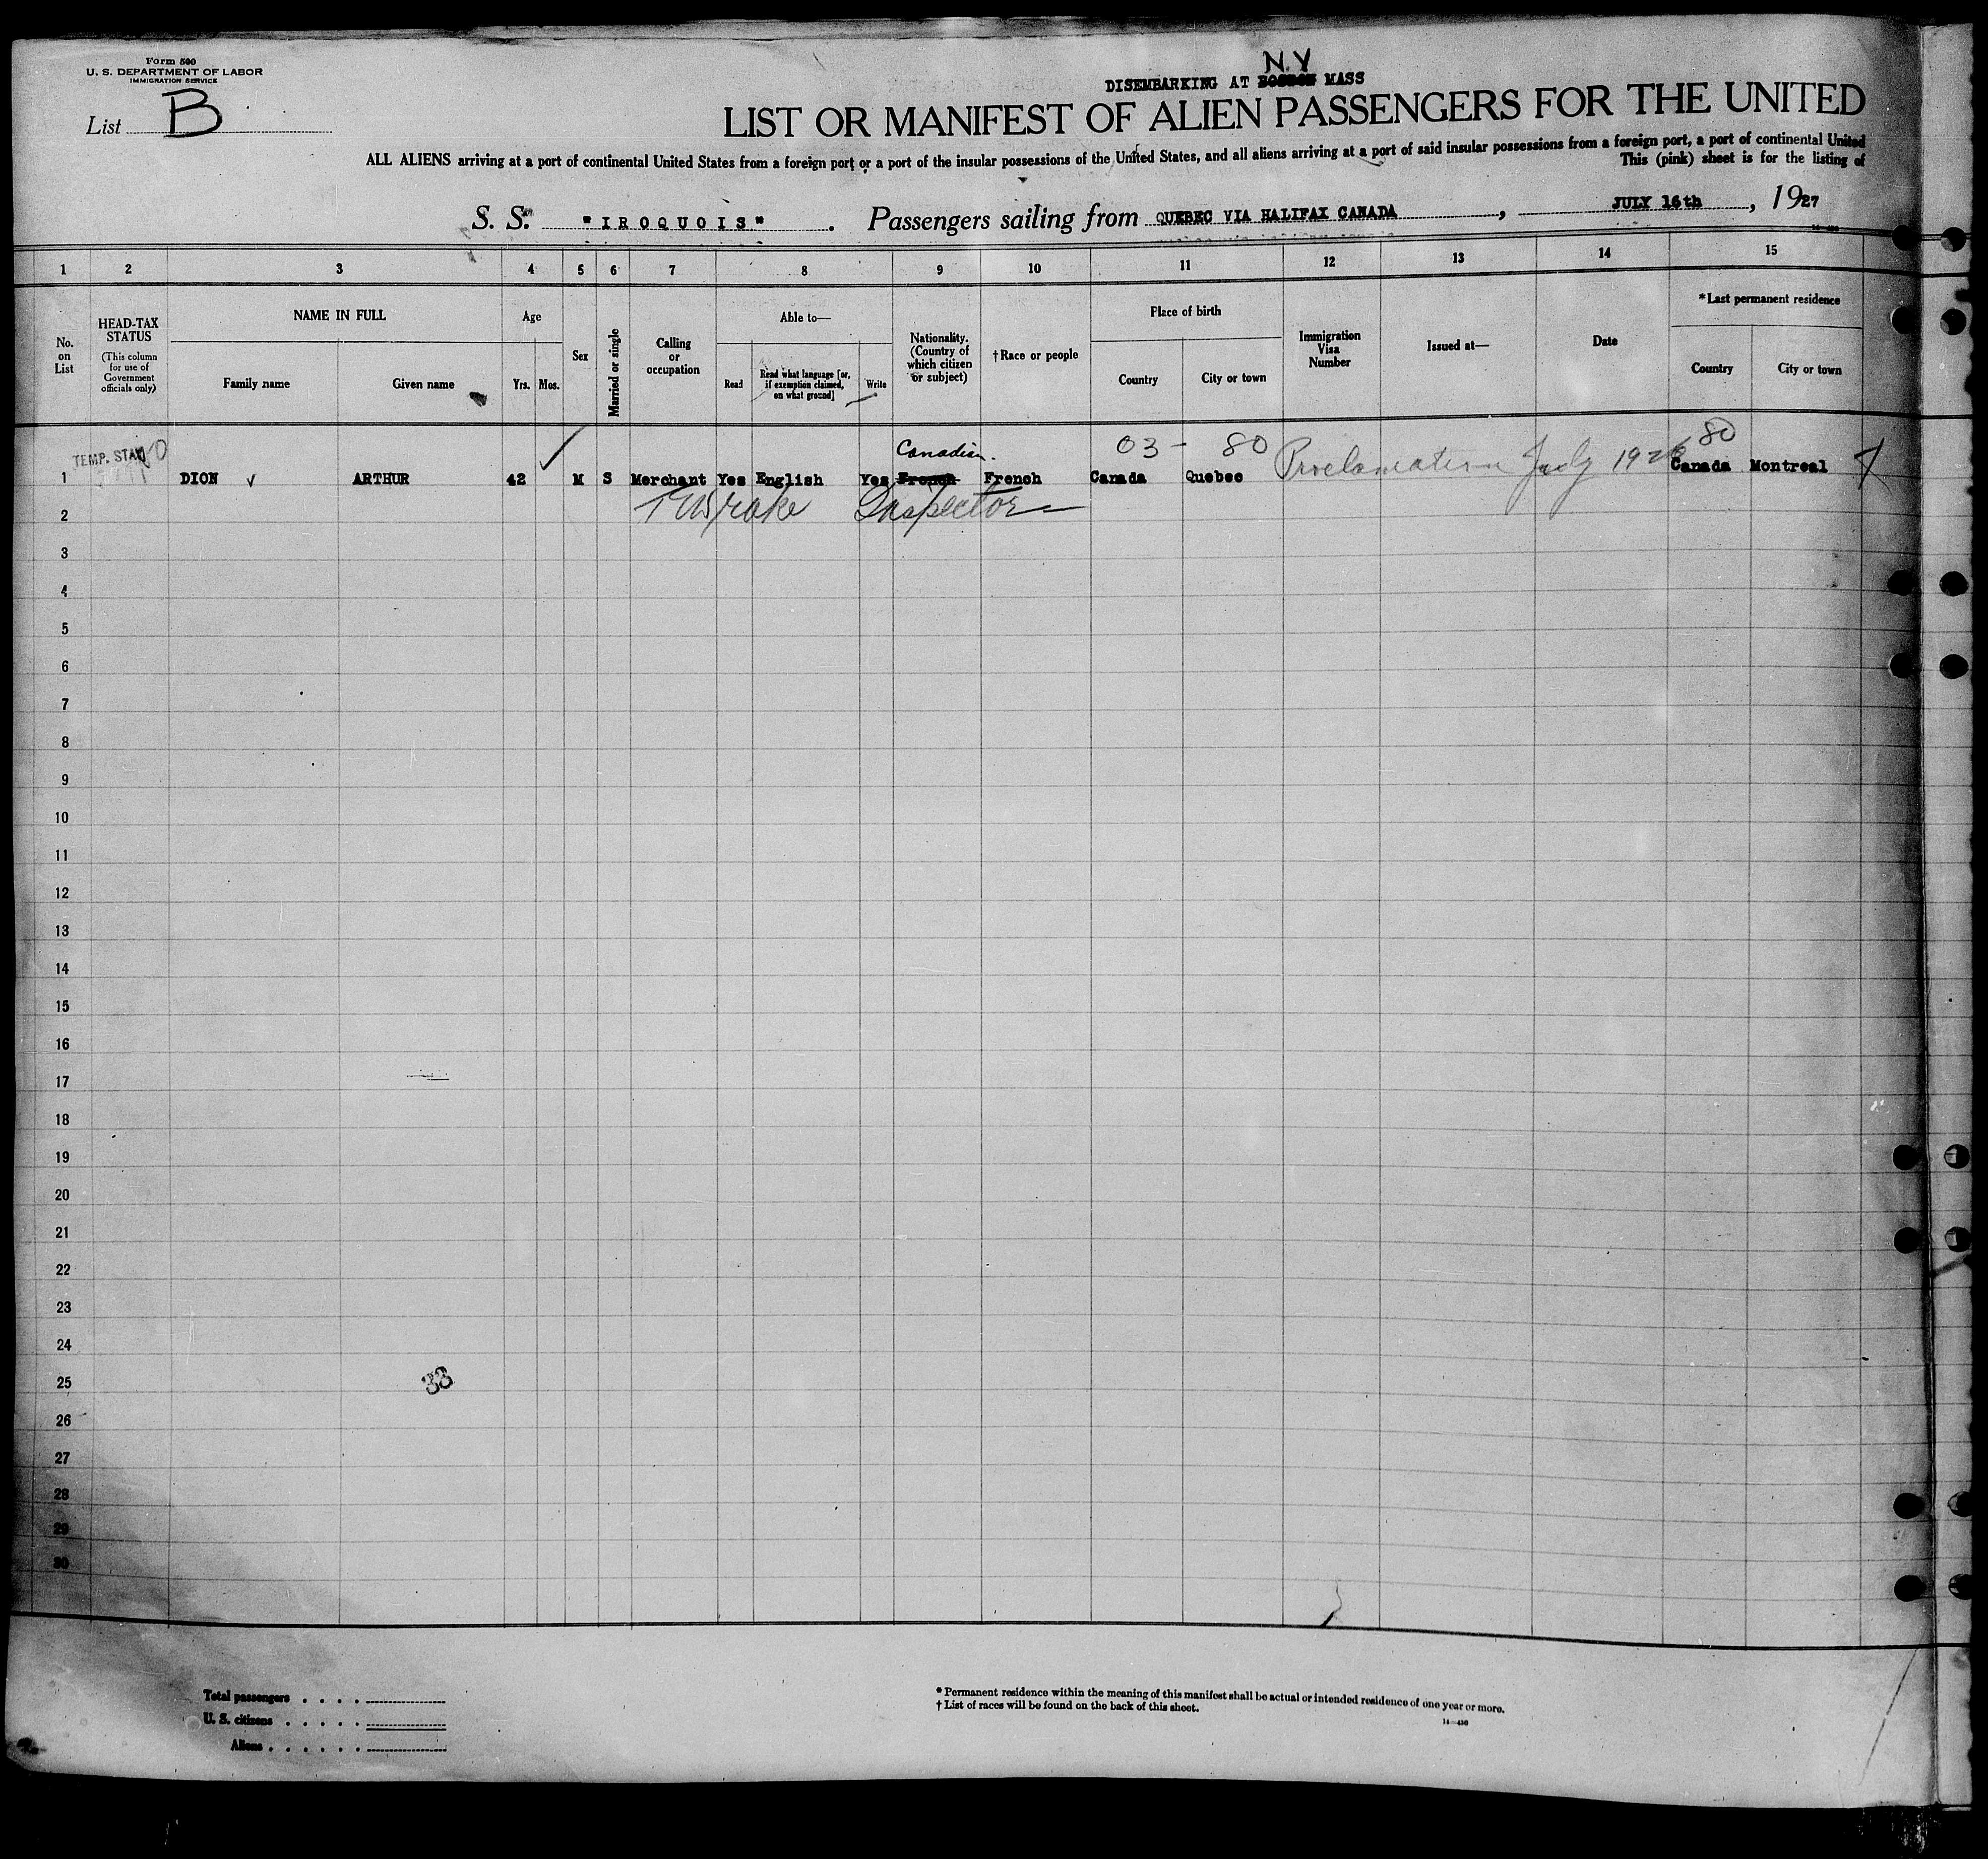 Form 500
U. S. DEPARTMENT OF LABOR
IMMIGRATION SERVICE
List B
N.Y
DISEMBARKING AT BOSTON MASS
LIST OR MANIFEST OF ALIEN PASSENGERS FOR THE UNITED
ALL ALIENS arriving at a port of continental United States from a foreign port or a port of the insular possessions of the United States, and all aliens arriving at a port of said insular possessions from a foreign port, a port of continental United
This (pink) sheet is for the listing of
S. S. "IROQUOIS". Passengers sailing from QUEBEC VIA HALIFAX CANADA, JULY 16th, 1927
1 2 3 4 5 6 7 8 9 10 11 12 13 14 15
No. on List
HEAD-TAX STATUS
(This column for use of Government officials only)
NAME IN FULL
Family name
Given name
Age
Yrs. Mos.
Sex
Married or single
Calling or occupation
Able to—
Read
Read what language [or, if exemption claimed, on what ground]
Write
Nationality. (Country of which citizen or subject)
†Race or people
Place of birth
Country
City or town
Immigration Visa Number
Issued at—
Date
*Last permanent residence
Country
City or town
TEMP. STAY
Canadian.
03 - 80
80
1 DION ARTHUR 42 M S Merchant Yes English Yes French French Canada Quebec Proclamation July 1926 Canada Montreal
2 Inspector
3
4
5
6
7
8
9
10
11
12
13
14
15
16
17
18
19
20
21
22
23
24
25
33
26
27
28
29
30
Total passengers
U. S. citizens
Aliens
* Permanent residence within the meaning of this manifest shall be actual or intended residence of one year or more.
† List of races will be found on the back of this sheet.
14—430